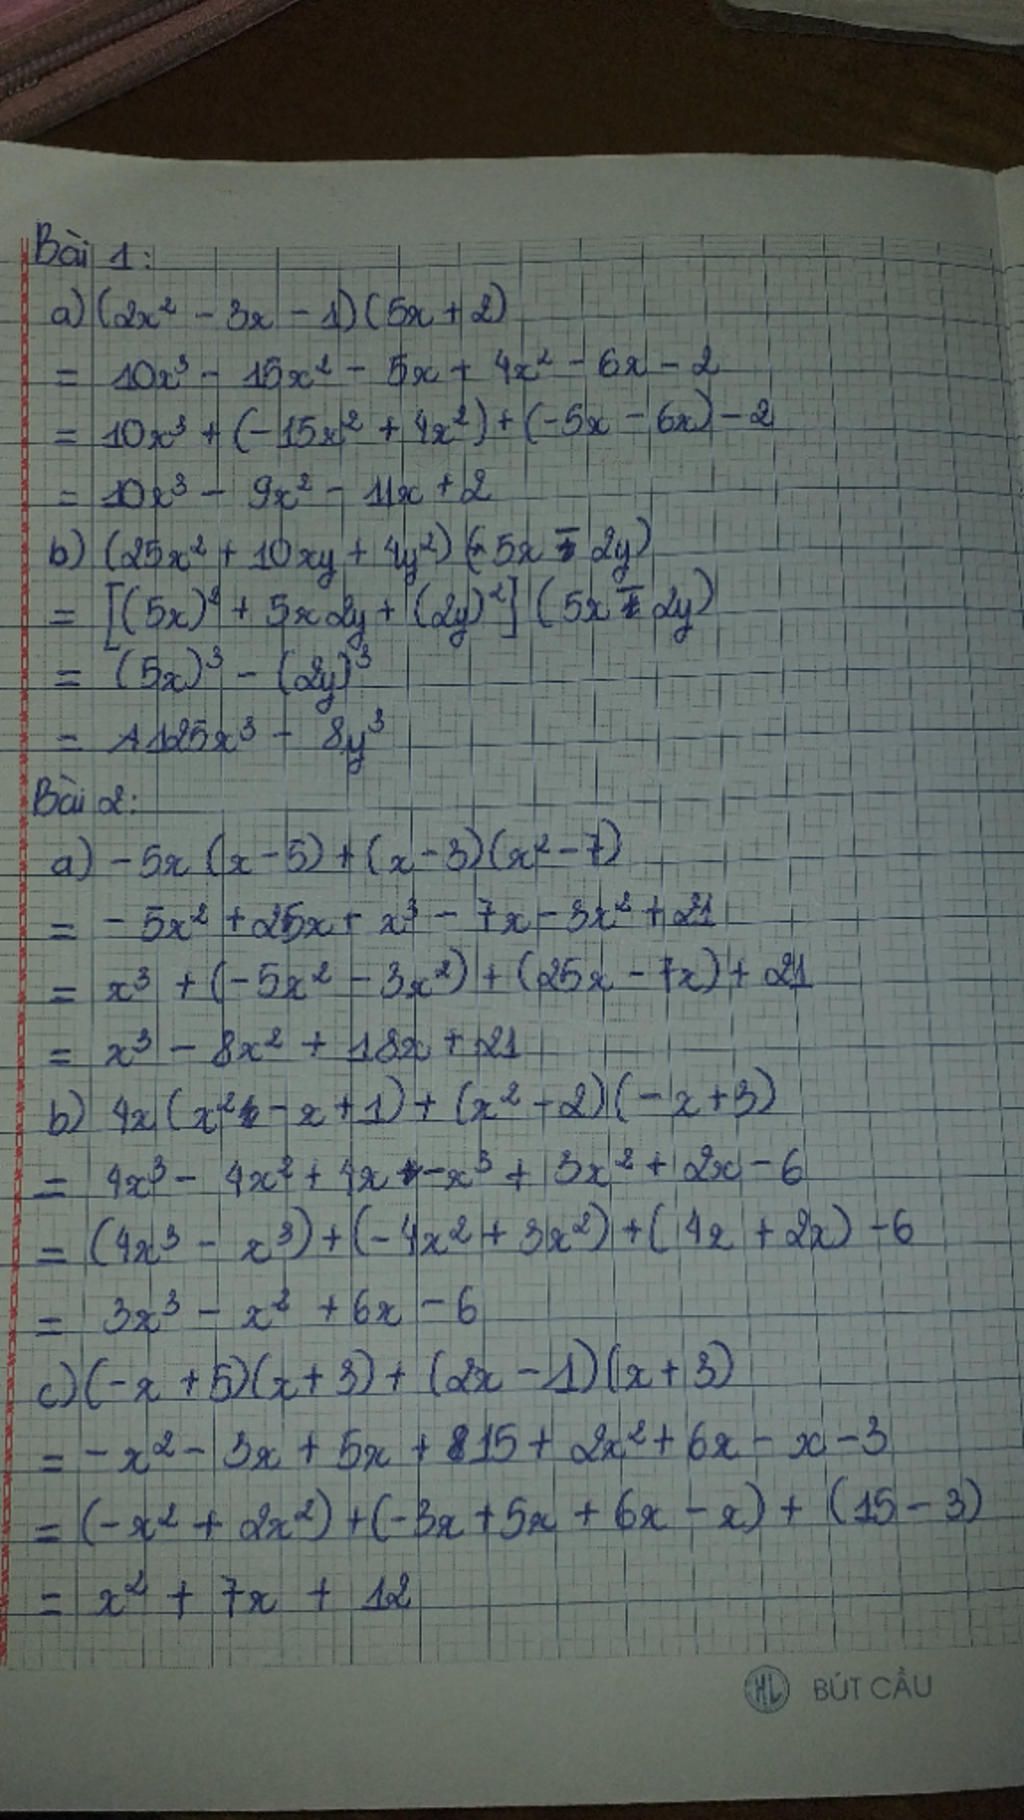 Bài 1:
a) (2x² - 3x - 1)(5x + 2)
= 10x³ - 15x² - 5x + 4x² - 6x - 2
= 10x³ + (-15x² + 4x²) + (-5x - 6x) - 2
= 10x³ - 9x² - 11x + 2
b) (25x² + 10xy + 4y²)(5x - 2y)
= [(5x)² + 5x2y + (2y)²](5x - 2y)
= (5x)³ - (2y)³
= 125x³ - 8y³
Bài 2:
a) -5x(x - 5) + (x - 3)(x² - 7)
= -5x² + 25x + x³ - 7x - 3x² + 21
= x³ + (-5x² - 3x²) + (25x - 7x) + 21
= x³ - 8x² + 18x + 21
b) 4x(x² - x + 1) + (x² - 2)(-x + 3)
= 4x³ - 4x² + 4x - x³ + 3x² + 2x - 6
= (4x³ - x³) + (-4x² + 3x²) + (4x + 2x) - 6
= 3x³ - x² + 6x - 6
c) (-x + 5)(x + 3) + (2x - 1)(x + 3)
= -x² - 3x + 5x + 15 + 2x² + 6x - x - 3
= (-x² + 2x²) + (-3x + 5x + 6x - x) + (15 - 3)
= x² + 7x + 12
HL BÚT CẦU